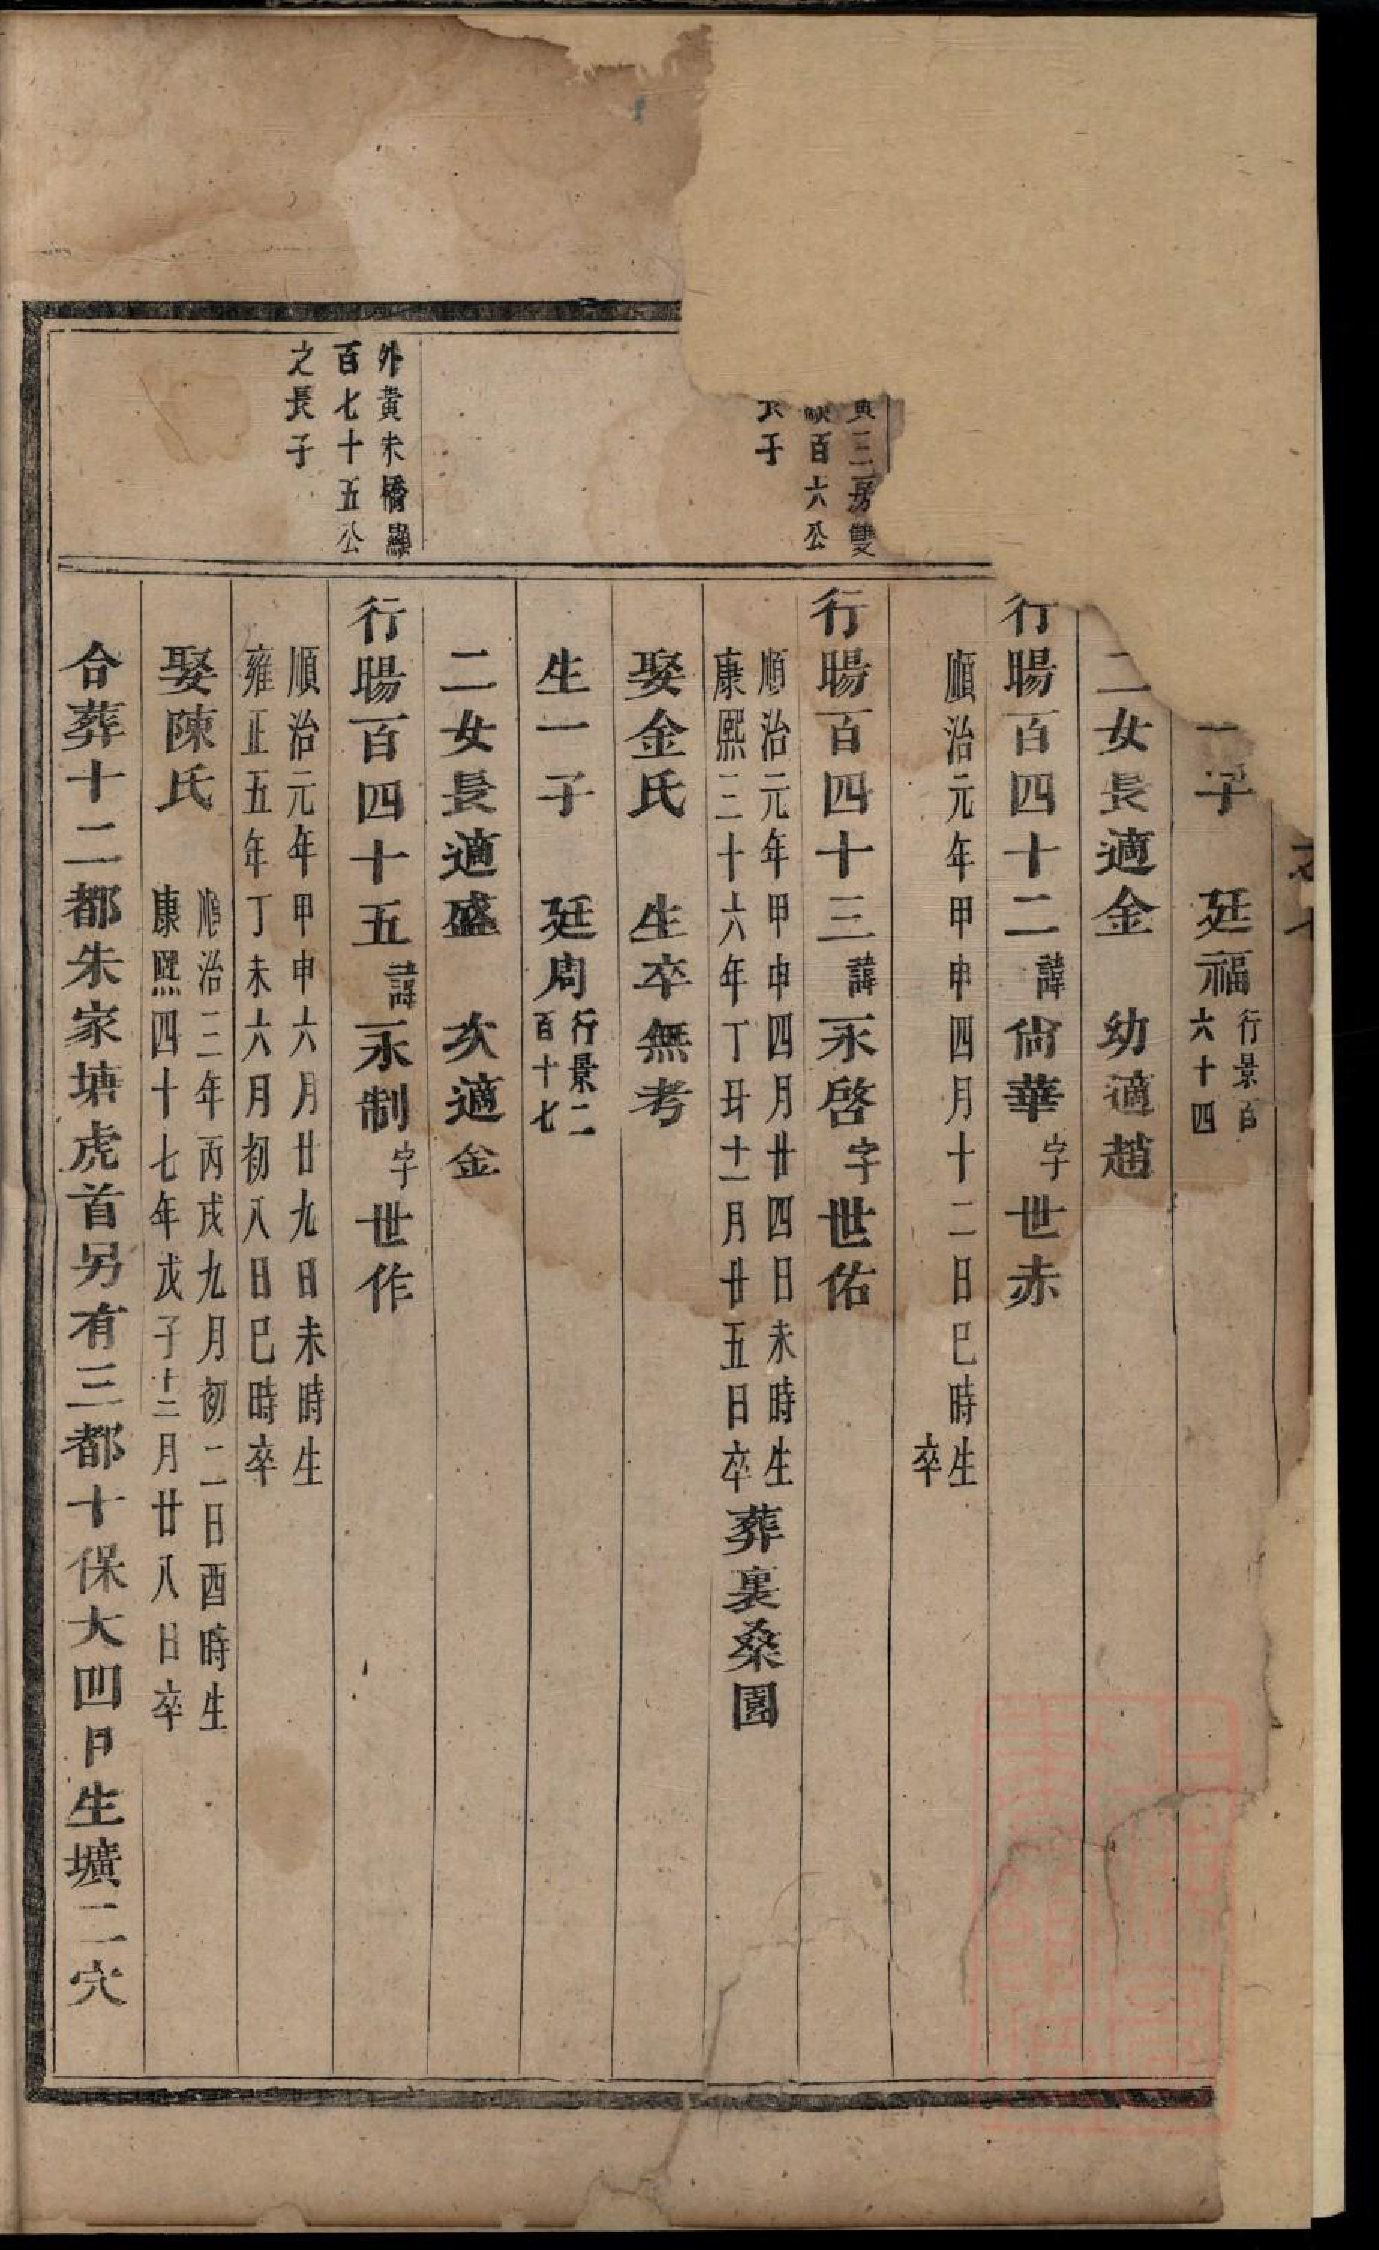 一子　廷福行景百六十四
二女長適金　幼適趙
行暘百四十二諱尙華字世赤
順治元年甲申四月十二日巳時生
卒
三房雙
百六公
子
行暘百四十三諱永啓字世佑
順治元年甲申四月廿四日未時生
康熙三十六年丁丑十一月廿五日卒葬裏桑園
娶金氏　生卒無考
生一子　廷周行景二百十七
二女長適盛　次適金
外黄朱橋
百七十五公
之長子
行暘百四十五諱永制字世作
順治元年甲申六月廿九日未時生
雍正五年丁未六月初八日巳時卒
娶陳氏
順治三年丙戌九月初二日酉時生
康熙四十七年戊子十二月廿八日卒
合葬十二都朱家塘虎首另有三都十保大凹日生壙二穴